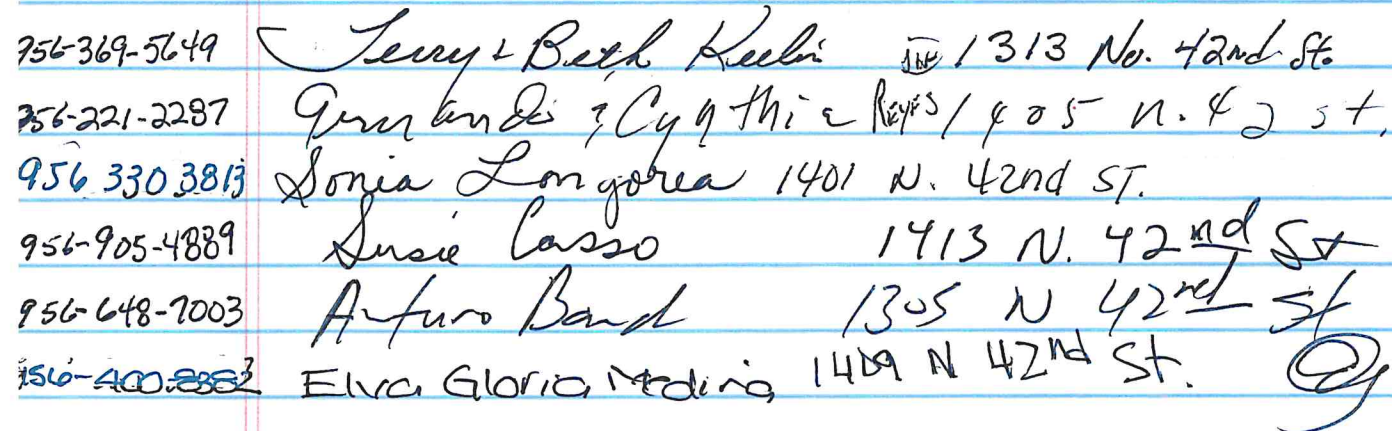 956-369-5649 Terry & Beth 1313 No. 42nd St.
956-221-2287 & Cynthia Reyes 1405 N. 42 st.
956 330 3813 Sonia Longoria 1401 N. 42nd ST.
956-905-4889 Susie Casso 1413 N. 42nd St
956-648-7003 Arturo 1305 N 42nd St
Elva Gloria Medina 1409 N 42nd St.